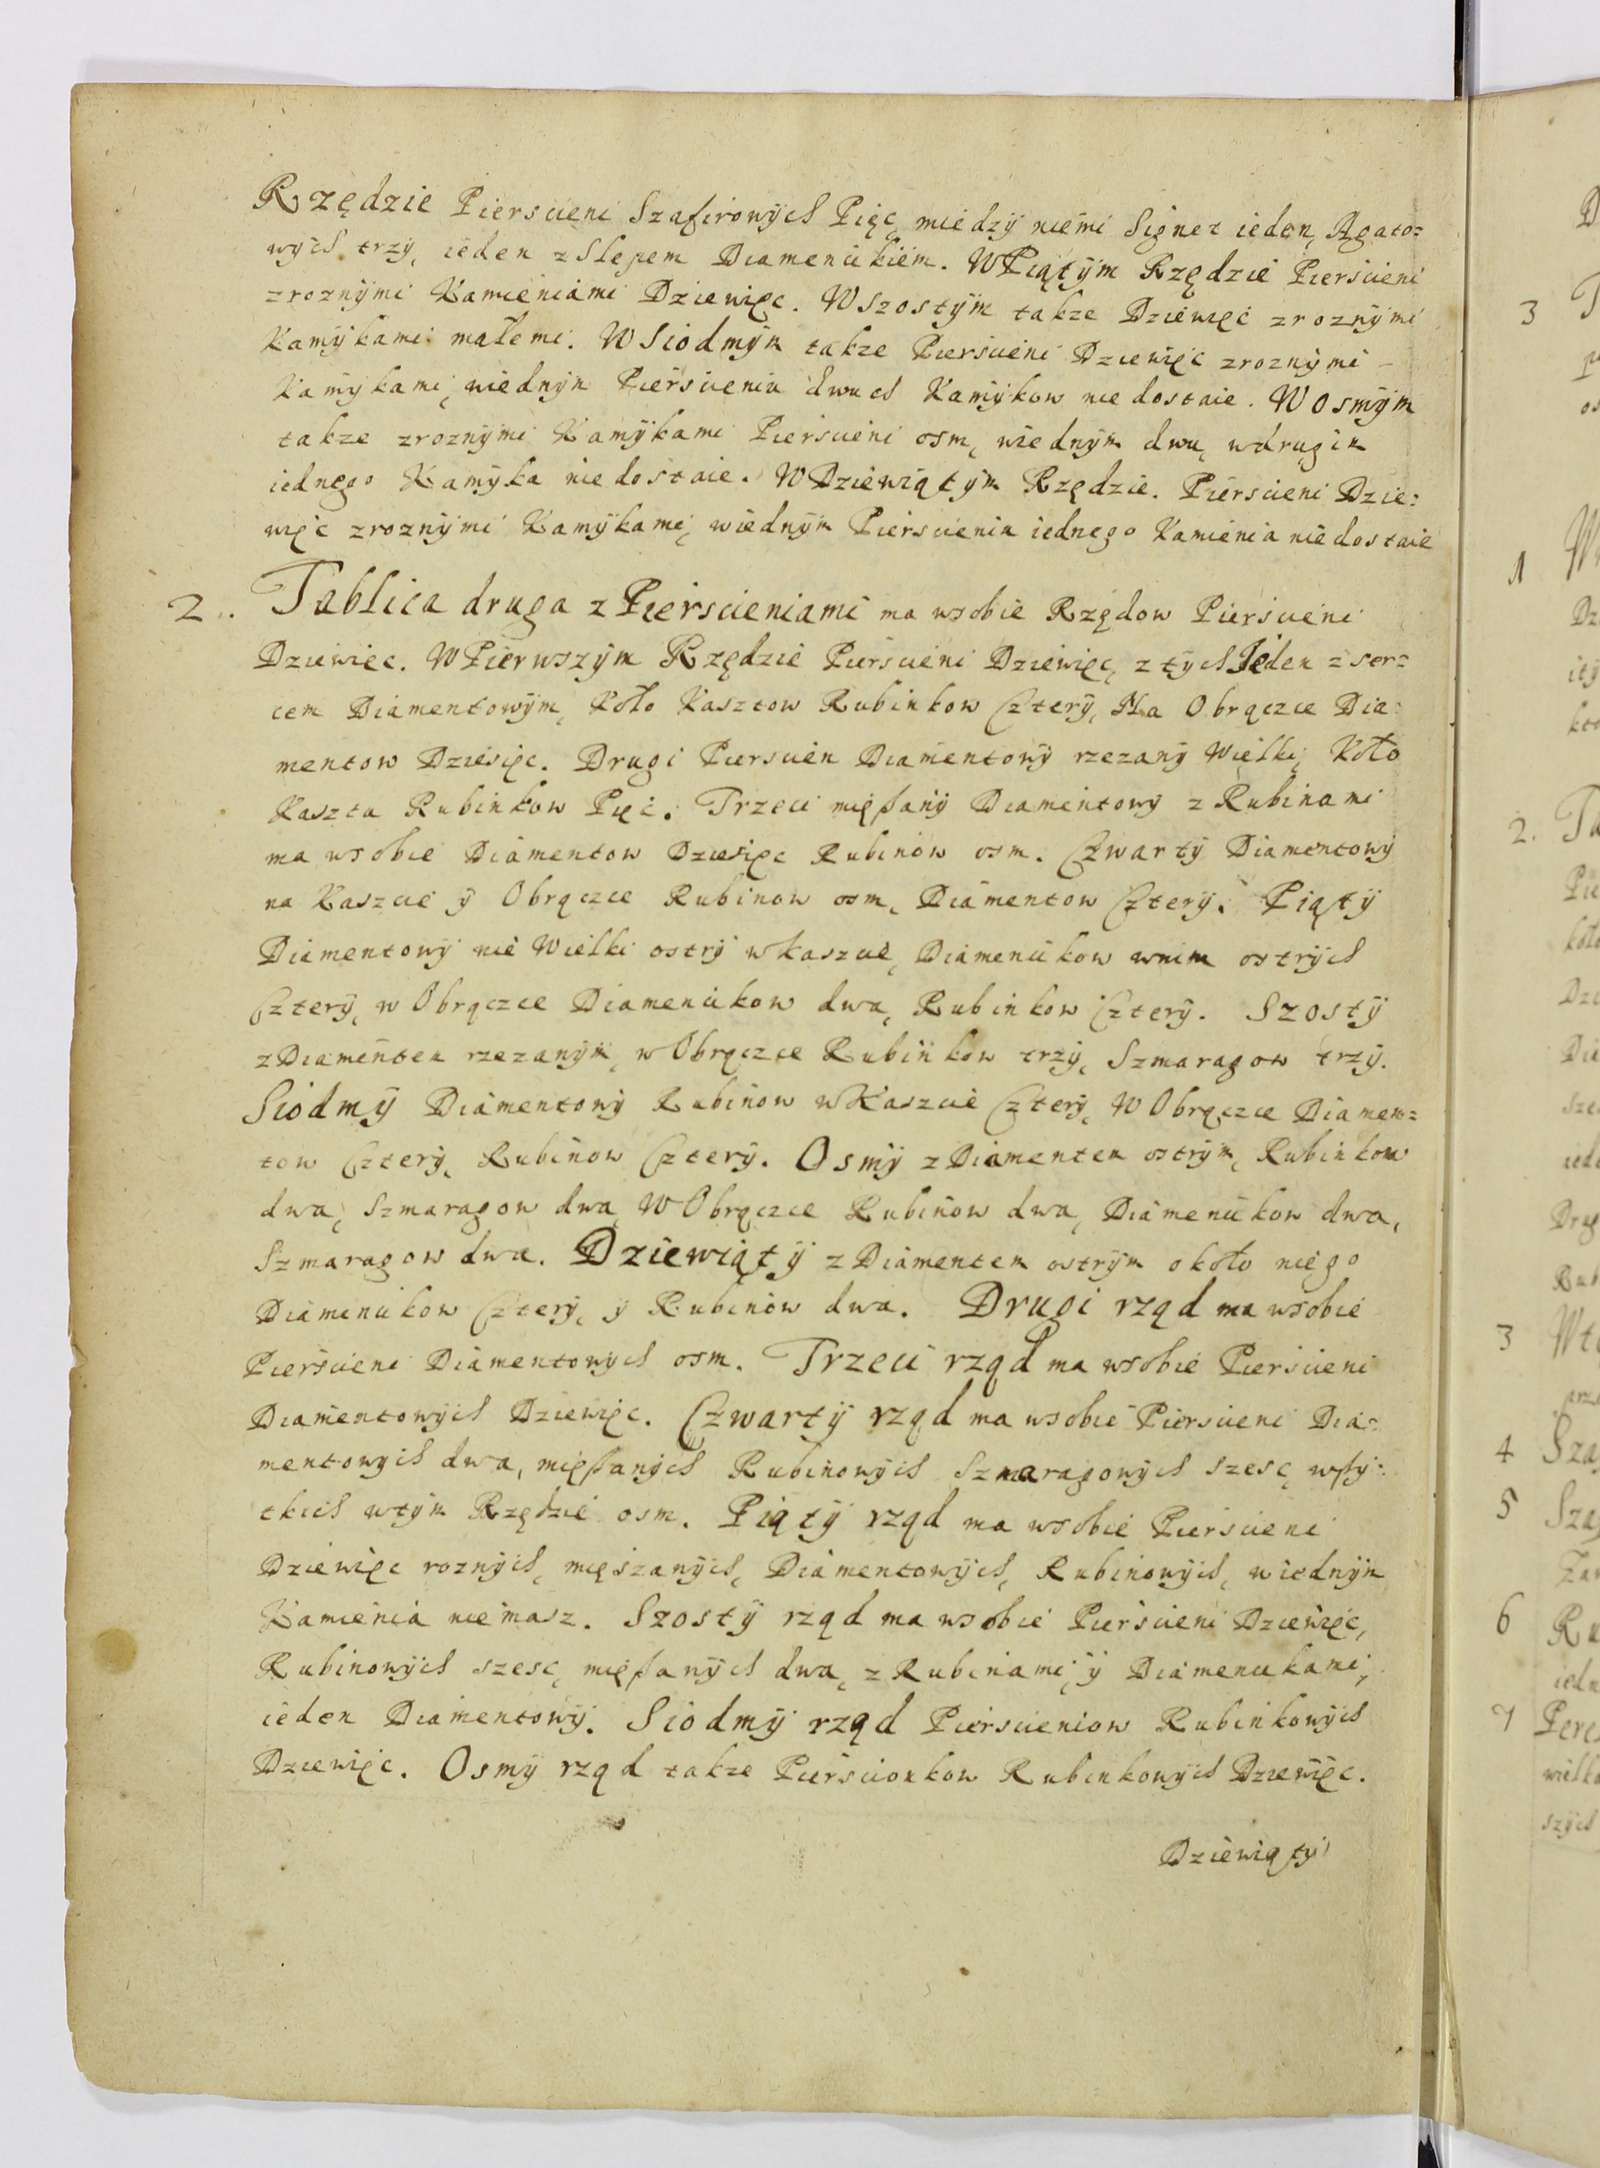 Rzędzie Pierscieni Szafirowych Pięc, miedzy niemi Signet ieden, Agato=
wych trzy, ieden z Slepem Diamencikiem. W Piątym Rzędzie Pierscieni
z roznymi Kamieniami Dziewięc. W Szostym takze Dziewięc z roznymi
Kamykami małemi. W Siodmym takze Pierscieni Dziewięc z roznymi
Kamykami, wiednym Pierscieniu dwuch Kamykow nie dostaie. W Osmym
takze z roznymi Kamykami Pierscieni osm, wiednym dwu, wdrugim
iednego Kamyka nie dostaie. W Dziewiątym Rzędzie. Pierscieni Dzie=
więc z roznymi Kamykami, wiednym Pierscieniu iednego Kamienia nie dostaie
2. Tablica druga z Pierscieniami ma wsobie Rzędow Pierscieni
Dziewięc. W Pierwszym Rzędzie Pierscieni Dziewięc, z tych Ieden z ser=
cem Diamentowym, Koło Kasztow Rubinkow Cztery, Na Obrączce Dia=
mentow Dziesięc. Drugi Pierscien Diamentowy rzezany Wielki, Koło
Kaszta Rubinkow Pięc. Trzeci mięszany Diamentowy z Rubinami
ma wsobie Diamentow Dziesięc Rubinow osm. Czwarty Diamentowy
na Kaszcie y Obrączce Rubinow osm, Diamentow Cztery. Piąty
Diamentowy nie Wielki ostry w kaszcie, Diamencikow wnim ostrych
Cztery, w Obrączce Diamencikow dwa, Rubinkow Cztery. Szosty
z Diamentem rzezanym, w Obrączce Rubinkow trzy, Szmaragow trzy.
Siodmy Diamentowy Rubinow w Kaszcie Cztery, W Obrączce Diamen=
tow Cztery, Rubinow Cztery. Osmy z Diamentem ostrym, Rubinkow
dwa, Szmaragow dwa, W Obrączce Rubinow dwa, Diamencikow dwa,
Szmaragow dwa. Dziewiąty z Diamentem ostrym około niego
Diamencikow Cztery, y Rubinow dwa. Drugi rząd ma wsobie
Pierscieni Diamentowych osm. Trzeci rząd ma wsobie Pierscieni
Diamentowych Dziewięc. Czwarty rząd ma wsobie Pierscieni Dia=
mentowych dwa, mięszanych Rubinowych Szmaragowych szesc, wszy=
tkich wtym Rzędzie osm. Piąty rząd ma wsobie Pierscieni
Dziewięc roznych, mięszanych, Diamentowych, Rubinowych, wiednym
Kamienia niemasz. Szosty rząd ma wsobie Pierscieni Dziewięc,
Rubinowych szesc, mięszanych dwa, z Rubinami, y Diamencikami,
ieden Diamentowy. Siodmy rząd Pierscieniow Rubinkowych
Dziewięc. Osmy rząd takze Pierscionkow Rubinkowych Dziewięc.
Dziewiąty
3
1
2.
3
4
5
6
7